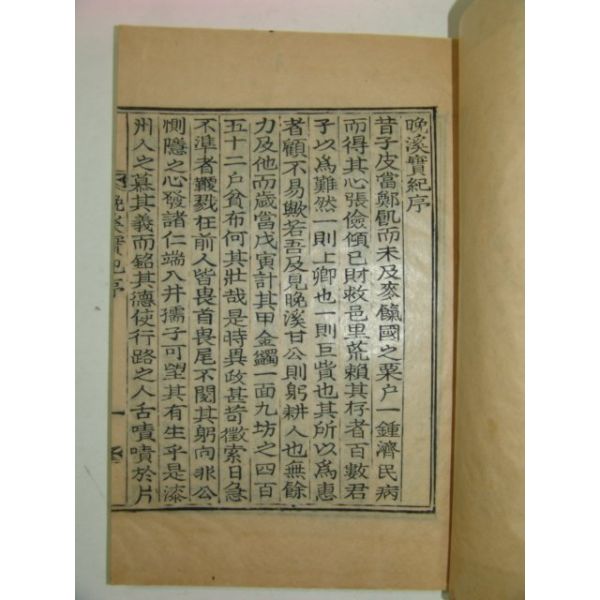 晩溪實紀序
昔子皮當鄭飢而未及麥餼國之粟户一鍾濟民病
而得其心張儉傾已財救邑里荒賴其存者百數君
子以爲難然一則上卿也一則巨貲也其所以爲惠
者顧不易歟若吾及見晩溪甘公則躬耕人也無餘
力及他而歲當戊寅計其甲金蠲一面九坊之四百
五十二户貧布何其壯哉是時異政甚苛徵索日急
不準者戮在前人皆畏首畏尾不閱其躬向非公
惻隱之心發諸仁端入井孺子可望其有生乎是漆
州人之慕其義而銘其德使行路之人舌嘖嘖於片
晩溪實紀序 一